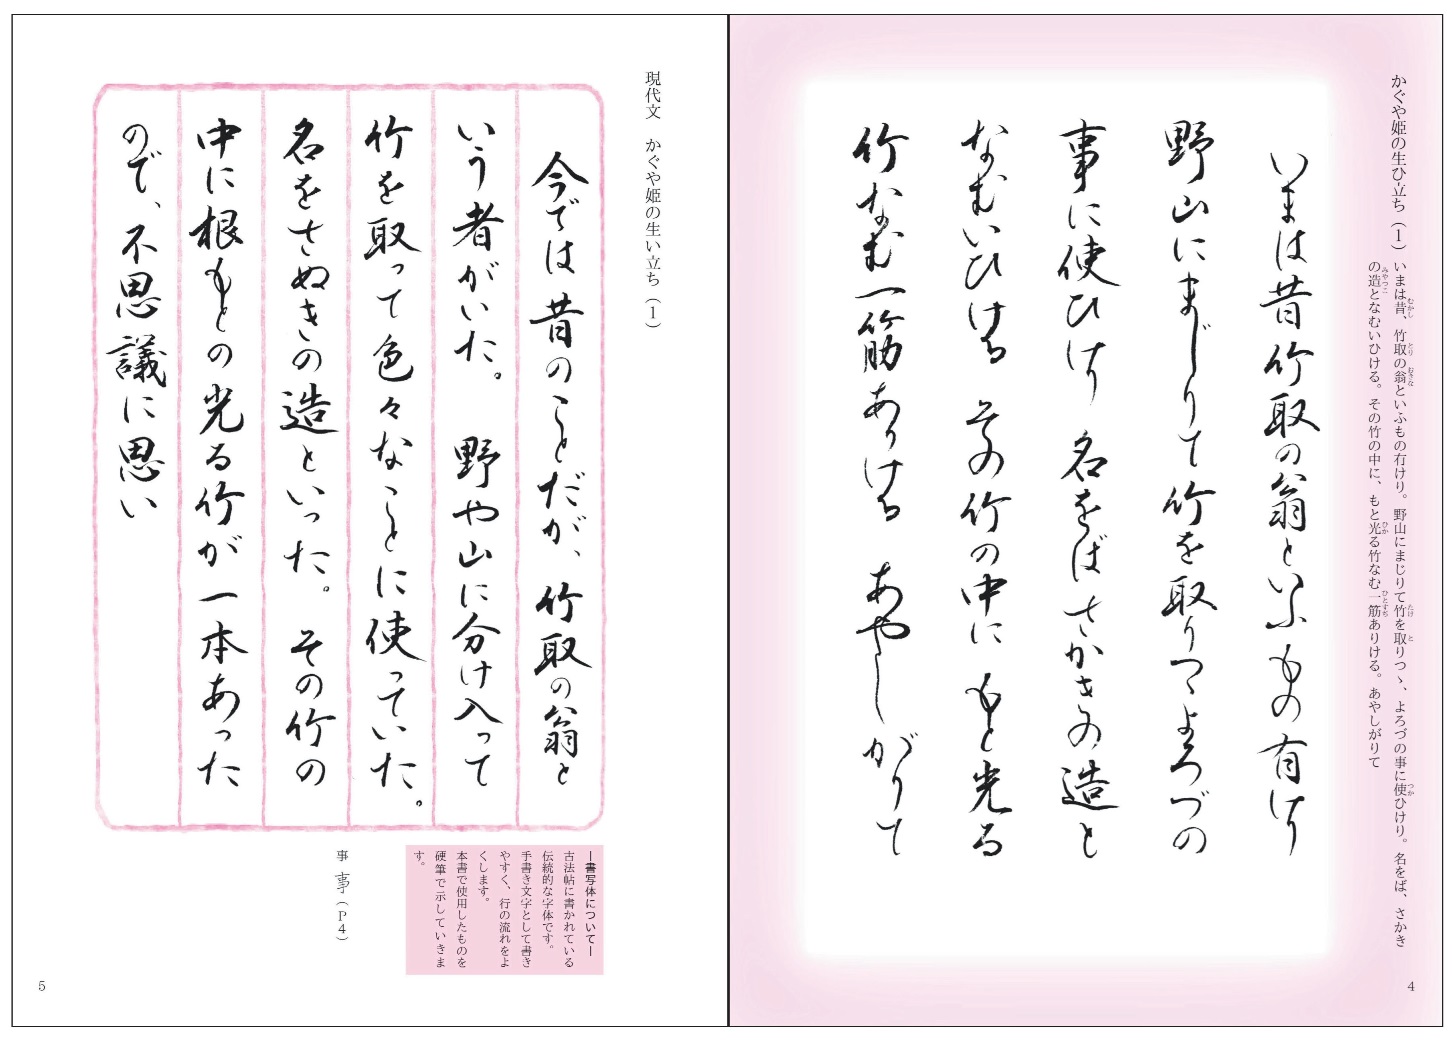 かぐや姫の生ひ立ち（1）
いまは昔、竹取の翁といふもの有けり。野山にまじりて竹を取りつゝ、よろづの事に使ひけり。名をば、さかき
の造となむいひける。その竹の中に、もと光る竹なむ一筋ありける。あやしがりて
むかし
とり
おきな
たけ
と
つか
みやつこ
ひか
ひとすぢ
いまは昔竹取の翁といふもの有けり
野山にまじりて竹を取りつゝよろづの
事に使ひけり 名をばさかきの造と
なむいひける その竹の中にもと光る
竹なむ一筋ありける あやしがりて
4
現代文 かぐや姫の生い立ち（1）
今では昔のことだが、竹取の翁と
いう者がいた。 野や山に分け入って
竹を取って色々なことに使っていた。
名をさぬきの造といった。 その竹の
中に根もとの光る竹が一本あった
ので、不思議に思い
―書写体について―
古法帖に書かれている
伝統的な字体です。
手書き文字として書き
やすく、行の流れをよ
くします。
本書で使用したものを
硬筆で示していきま
す。
事 亊（P4）
5